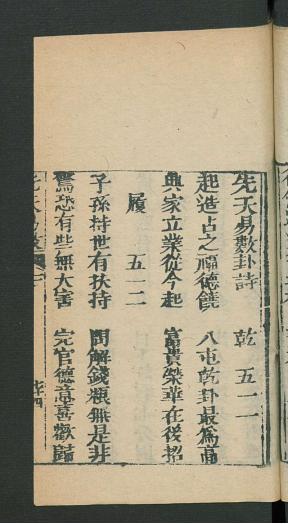 先天易數卦詩　乾　五一一
起造占之福德饒　八屯乾卦最為高
興家立業從今起　富貴榮華在後招
履　五一二
子孫持世有扶持　問解錢糧無是非
驚恐有些無大害　完官德意喜歡歸
先天易數